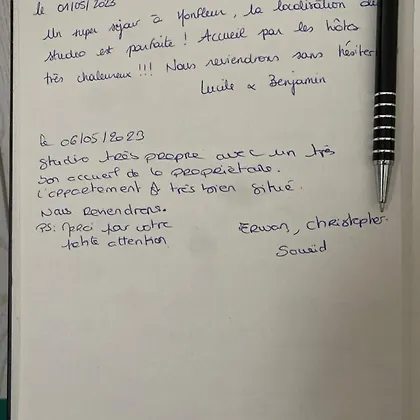 le 01/05/2023
Un super séjour à Honfleur, la localisation du
studio est parfaite ! Accueil par les hôtes
très chaleureux !!! Nous reviendrons sans hésiter
Lucile & Benjamin
le 06/05/2023
Studio très propre avec un très
bon accueil de la propriétaire.
L'appartement très bien situé.
Nous Reviendrons.
PS: Merci pour votre
petite attention
Erwan, Christopher
Souaïd